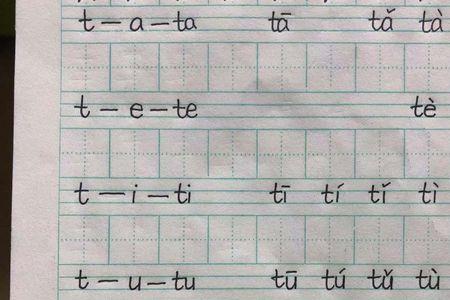 t — a — ta tā tǎ tà
t — e — te tè
t — i — ti tī tí tǐ tì
t — u — tu tū tú tǔ tù